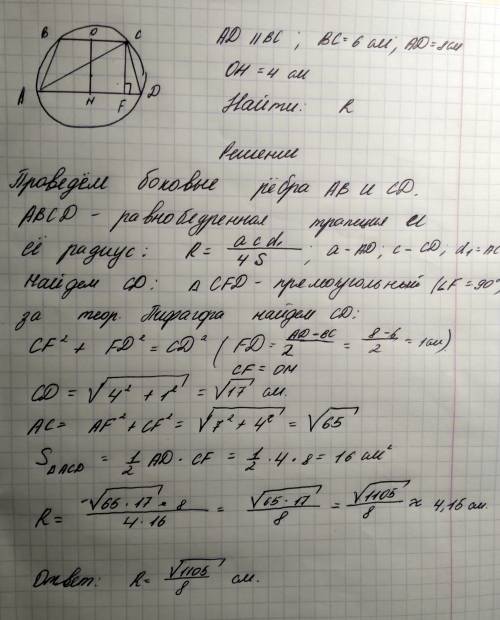 B O C
A H F D
AD || BC ; BC = 6 см, AD = 8 см
OH = 4 см
Найти: R
Решение
Проведём боковые рёбра AB и CD.
ABCD - равнобедренная трапеция и
её радиус: R = a c d₁ / 4 S ; a - AD; c - CD, d₁ = AC
Найдем CD: △ CFD - прямоугольный (∠F = 90°
за теор. Пифагора найдем CD:
CF² + FD² = CD² ( FD = AD - BC / 2 = 8 - 6 / 2 = 1 см)
CF = OH
CD = √4² + 1² = √17 см.
AC = AF² + CF² = √7² + 4² = √65
S△ACD = 1/2 AD · CF = 1/2 · 4 · 8 = 16 см²
R = √65 · 17 · 8 / 4 · 16 = √65 · 17 / 8 = √1105 / 8 ≈ 4,15 см.
Ответ: R = √1105 / 8 см.